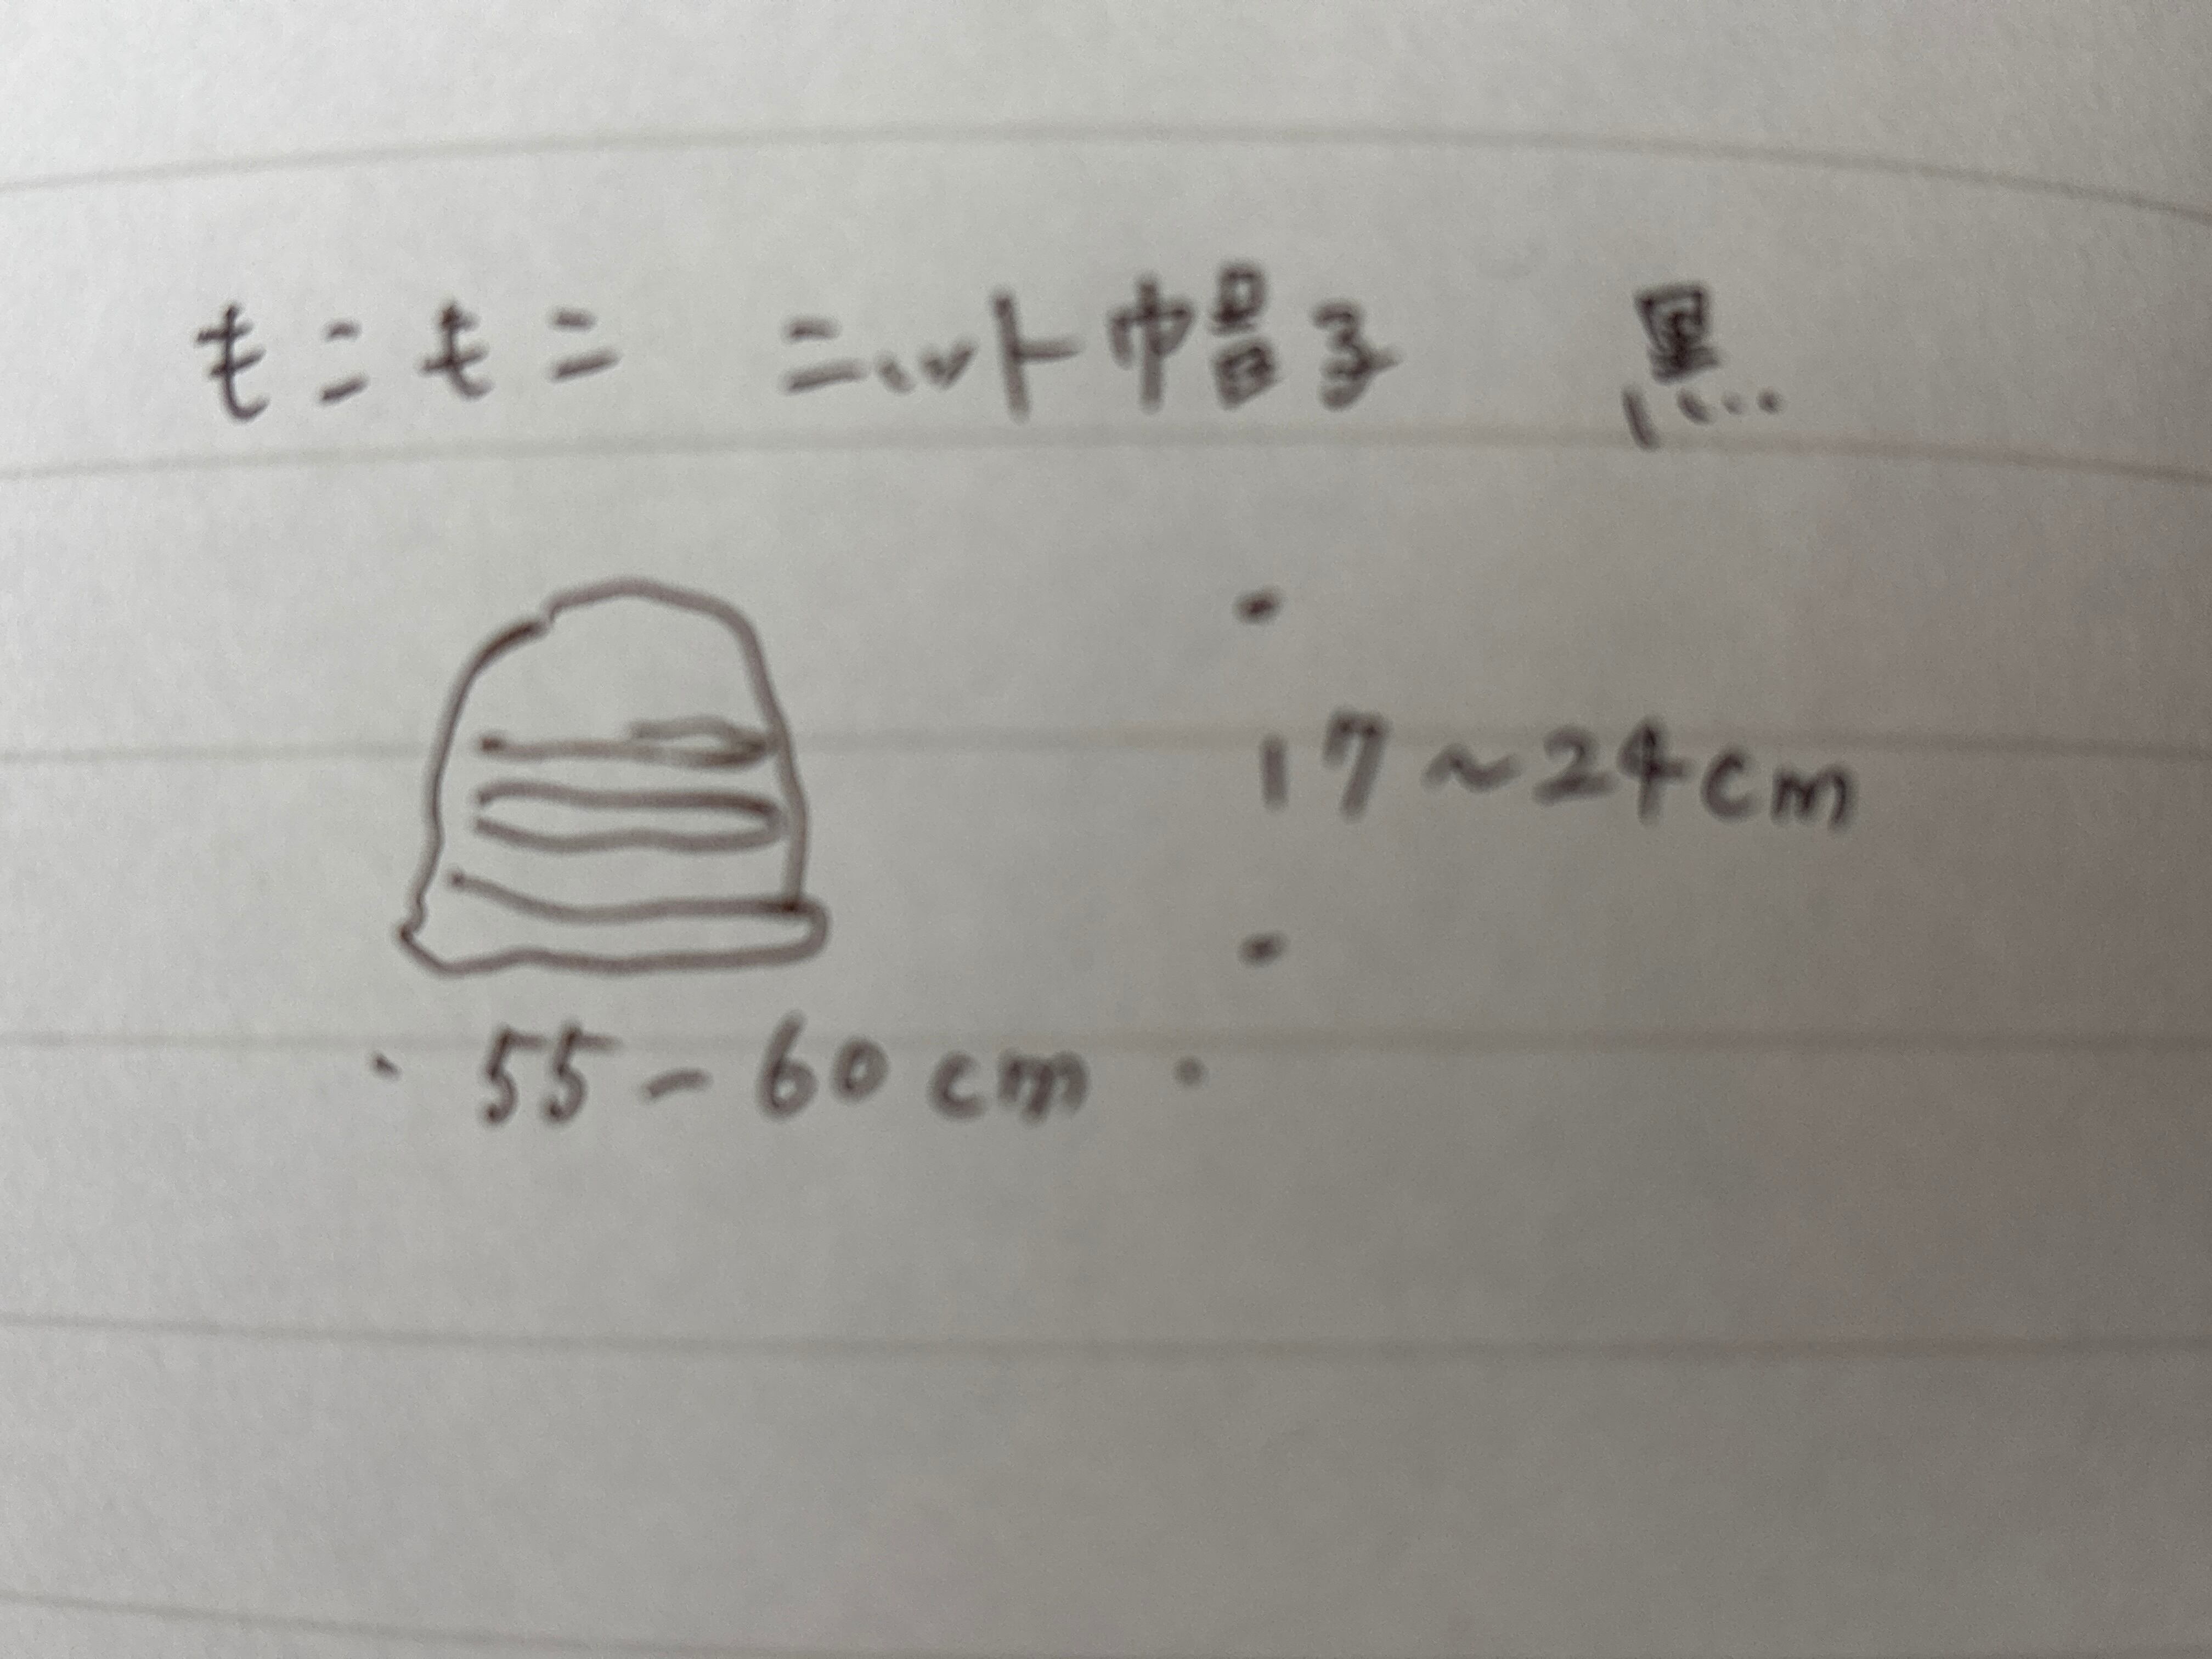 もこもこ ニット帽子 黒
17~24cm
55-60cm